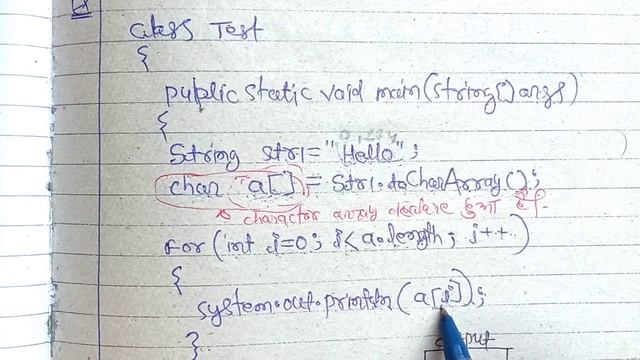 class Test
{
public static void main(String[] args)
{
01234
String str1="Hello";
char a[] = Str1.toCharArray();
character array declare हुआ है।
for(int i=0; i<a.length; i++)
{
system.out.println(a[i]);
}
output